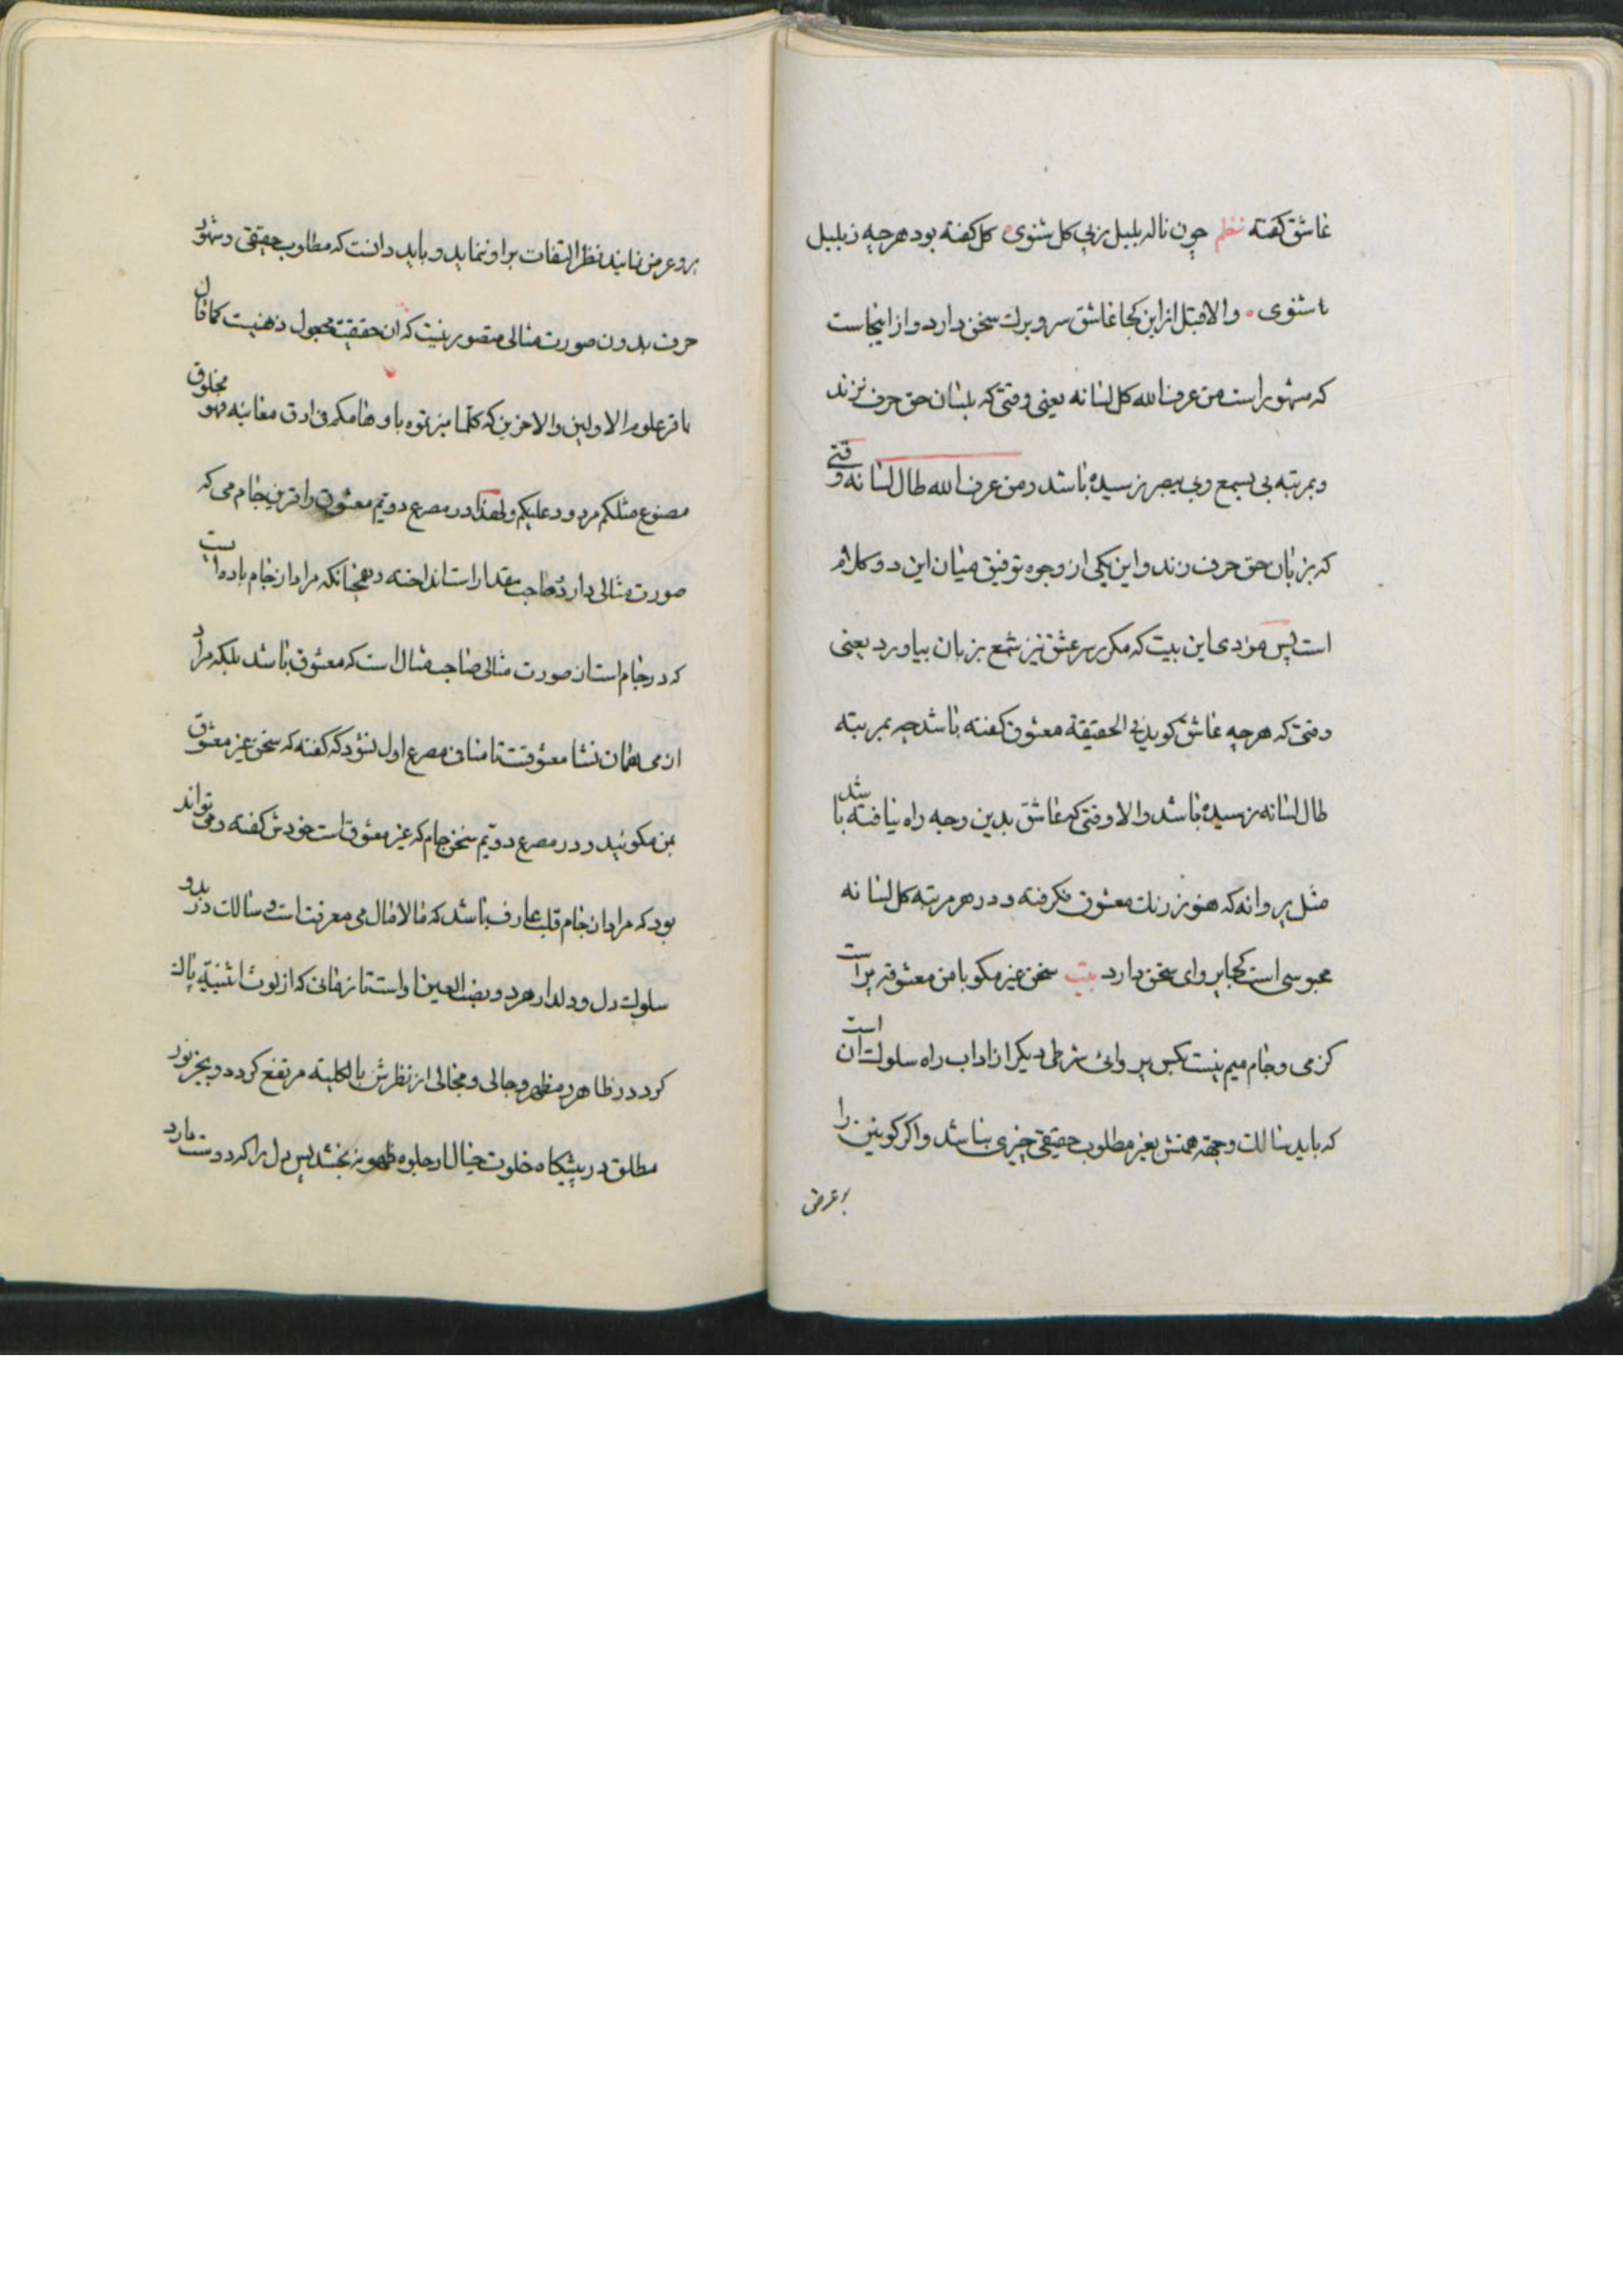 عاشق کفته نظم چون ناله بلبل زپی کل شنوی کل کفته بود هرچه زبلبل
شنوی والا قبل از این کجا عاشق سر و برک سخن دارد و از اینجاست
که مشهور است من عرف الله کل لسانه یعنی وقتی که بلسان حق حرف نزند
و بمرتبه بی یسمع و بی یبصر نرسیده باشد و من عرف الله طال لسانه وقتی
که بزبان حق حرف زند و این یکی از وجوه توفیق میان این دو کلام
است پس مؤدی این بیت که مکر سر عشق نیز شمع بزبان بیاورد یعنی
وقتی که هرچه عاشق کوید فی الحقیقة معشوق کفته باشد چه بمرتبه
طال لسانه رسیده باشد والا وقتی که عاشق بدین وجه راه نیافته باشد
مثل پروانه که هنوز رنک معشوق نکرفته و در هر مرتبه کل لسانه
محبوسی است کجا پروای سخن دارد بیت سخن غیر مکو با من معشوقه پرست
کز می و جام میم نیست بکس پروائی شرطی دیکر از اداب راه سلوک آن است
که باید سالک وجهه همتش بغیر مطلوب حقیقی چیزی نباشد واکر کونین را
بر عرض
برو عرض نمایند نظر التفات براو ننماید و باید دانست که مطلوب حقیقی و شهود
حرف بدون صورت مثالی متصور نیست که ان حقیقت مجعول ذهنیست کما قال
باقر علوم الاولین والاخرین که کلما میزتموه باوهامکم فی ادق معانیه فهو مخلوق
مصنوع مثلکم مردود علیکم ولهذا در مصرع دویم معشوق را قرین جام می که
صورت مثالی دارد صاحب مقدار است انداخته و همچنانکه مراد از جام باده ایست
که در جام است از صورت مثالی صاحب مثال است که معشوق باشد بلکه مراد
از می همان نشا معشوقست تا منافی مصرع اول نشود که کفته که سخن غیر معشوق
بمن مکوئید و در مصرع دویم سخن جام که غیر معشوق است خودش کفته و می تواند
بود که مراد از جام قلب عارف باشد که مالامال می معرفت است و سالک در بدو
سلوک دل و دلدار هر دو نصب العین او است تا زمانی که از لوث اثنینیه پاک
کردد در ظاهر و مظهر و جالی و مجالی از نظرش بالکلیه مرتفع کردد و بجز نور
مطلق در پیشکاه خلوت خیال او جلوه ظهور نبخشد پس دل را که دوست دارد